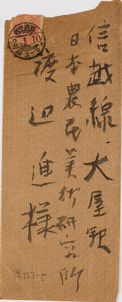 信越線大屋駅
日本農民美術研究所
渡辺進様